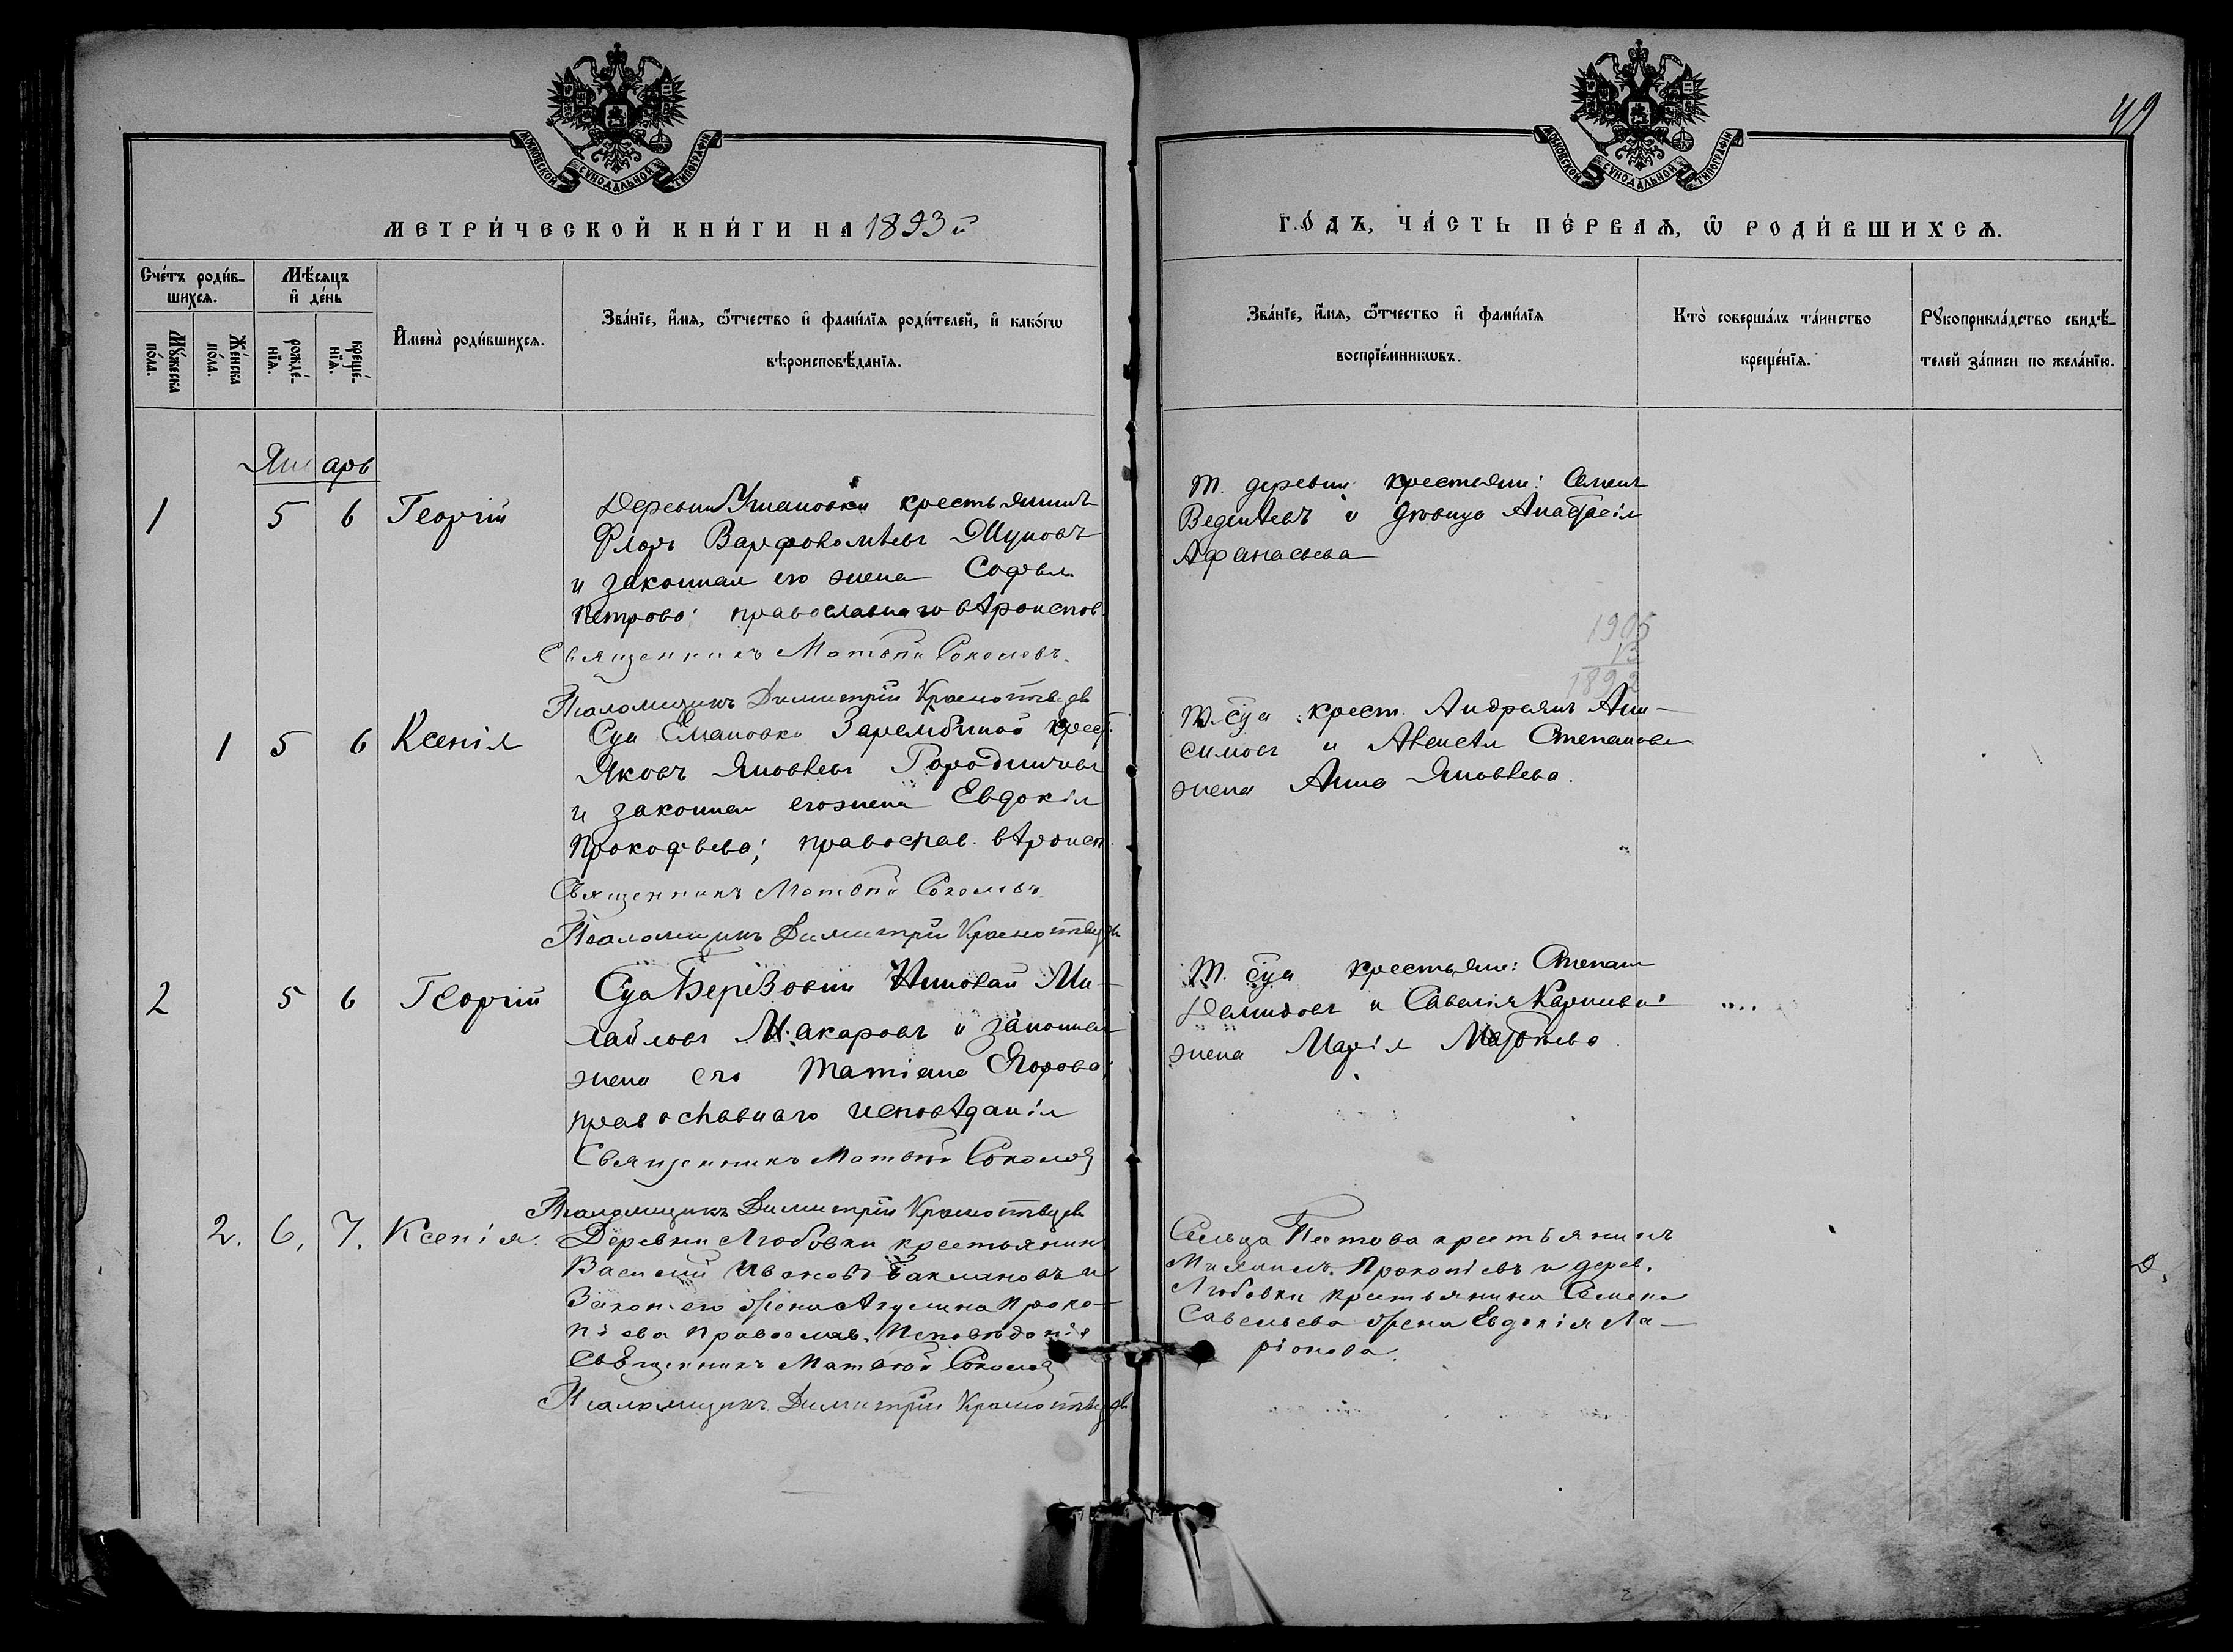 49
МОСКОВСКОЙ СѴНОДАЛЬНОЙ ТИПОГРАФІИ
МОСКОВСКОЙ СѴНОДАЛЬНОЙ ТИПОГРАФІИ
МЕТРИ́ЧЕСКОЙ КНИ́ГИ НА 1893й
ГО́ДЪ, ЧА́СТЬ ПЕ́РВАѦ, Ѡ҆ РОДИ́ВШИХСѦ.
Сче́тъ роди́в-
шихсѧ.
Мꙋ́жеска по́ла.
Же́нска по́ла.
Мѣ́сѧцъ
и҆ де́нь
рожде́-
нїѧ.
креще́-
нїѧ.
И҆мена̀ роди́вшихсѧ.
Зва́нїе, и҆́мѧ, ѻ҆́тчество и҆ фами́лїѧ роди́телей, и҆ како́гѡ
вѣроисповѣ́данїѧ.
Зва́нїе, и҆́мѧ, ѻ҆́тчество и҆ фами́лїѧ
воспрїе́мникѡвъ.
Кто̀ соверша́лъ та́инство
креще́нїѧ.
Рꙋкоприкла́дство свидѣ́-
телей за́писи по жела́нїю.
Январь
1 5 6 Георгій
Деревни крестьянинъ
Флоръ Варфоломѣевъ
и законная его жена Софья
Петрова; православнаго вѣроиспов.
Священникъ Матѳій Соколовъ.
Псаломщикъ Димитрій
Т. деревни крестьяне: Семенъ
и девица Анастасія
Афанасьева
1905
13
1892
1 5 6 Ксенія
Сца крест.
Яковъ Яковлевъ
и законная его жена Евдокія
Прокофьева; православ. вѣроисп.
Священникъ Матѳій Соколовъ
Псаломщикъ Димитрій
Т. сца крест. Андреянъ Ани-
симовъ и Алексѣя Степанова
жена Анна Яковлева.
2 5 6 Георгій
Сца Березовки Николай Ми-
хайловъ Макаровъ и законная
жена его Татіана Егорова;
православнаго исповѣданія
Священникъ Матѳій Соколовъ
Псаломщикъ Димитрій
Т. сца крестьяне: Степанъ
Демидовъ и Савелія
жена Марія Матвѣева.
2. 6. 7. Ксенія.
Деревни Любовки крестьянин
Василій Ивановъ Баклановъ и
Закон. его жена Акулина Проко-
піева православ. Исповѣданія
Священникъ Матѳій Соколовъ
Псаломщикъ Димитрій
Сельца крестьянинъ
Михаилъ Прокопіевъ и дерев.
Любовки крестьянина Семена
Савельева жена Евдокія Ла-
ріонова.